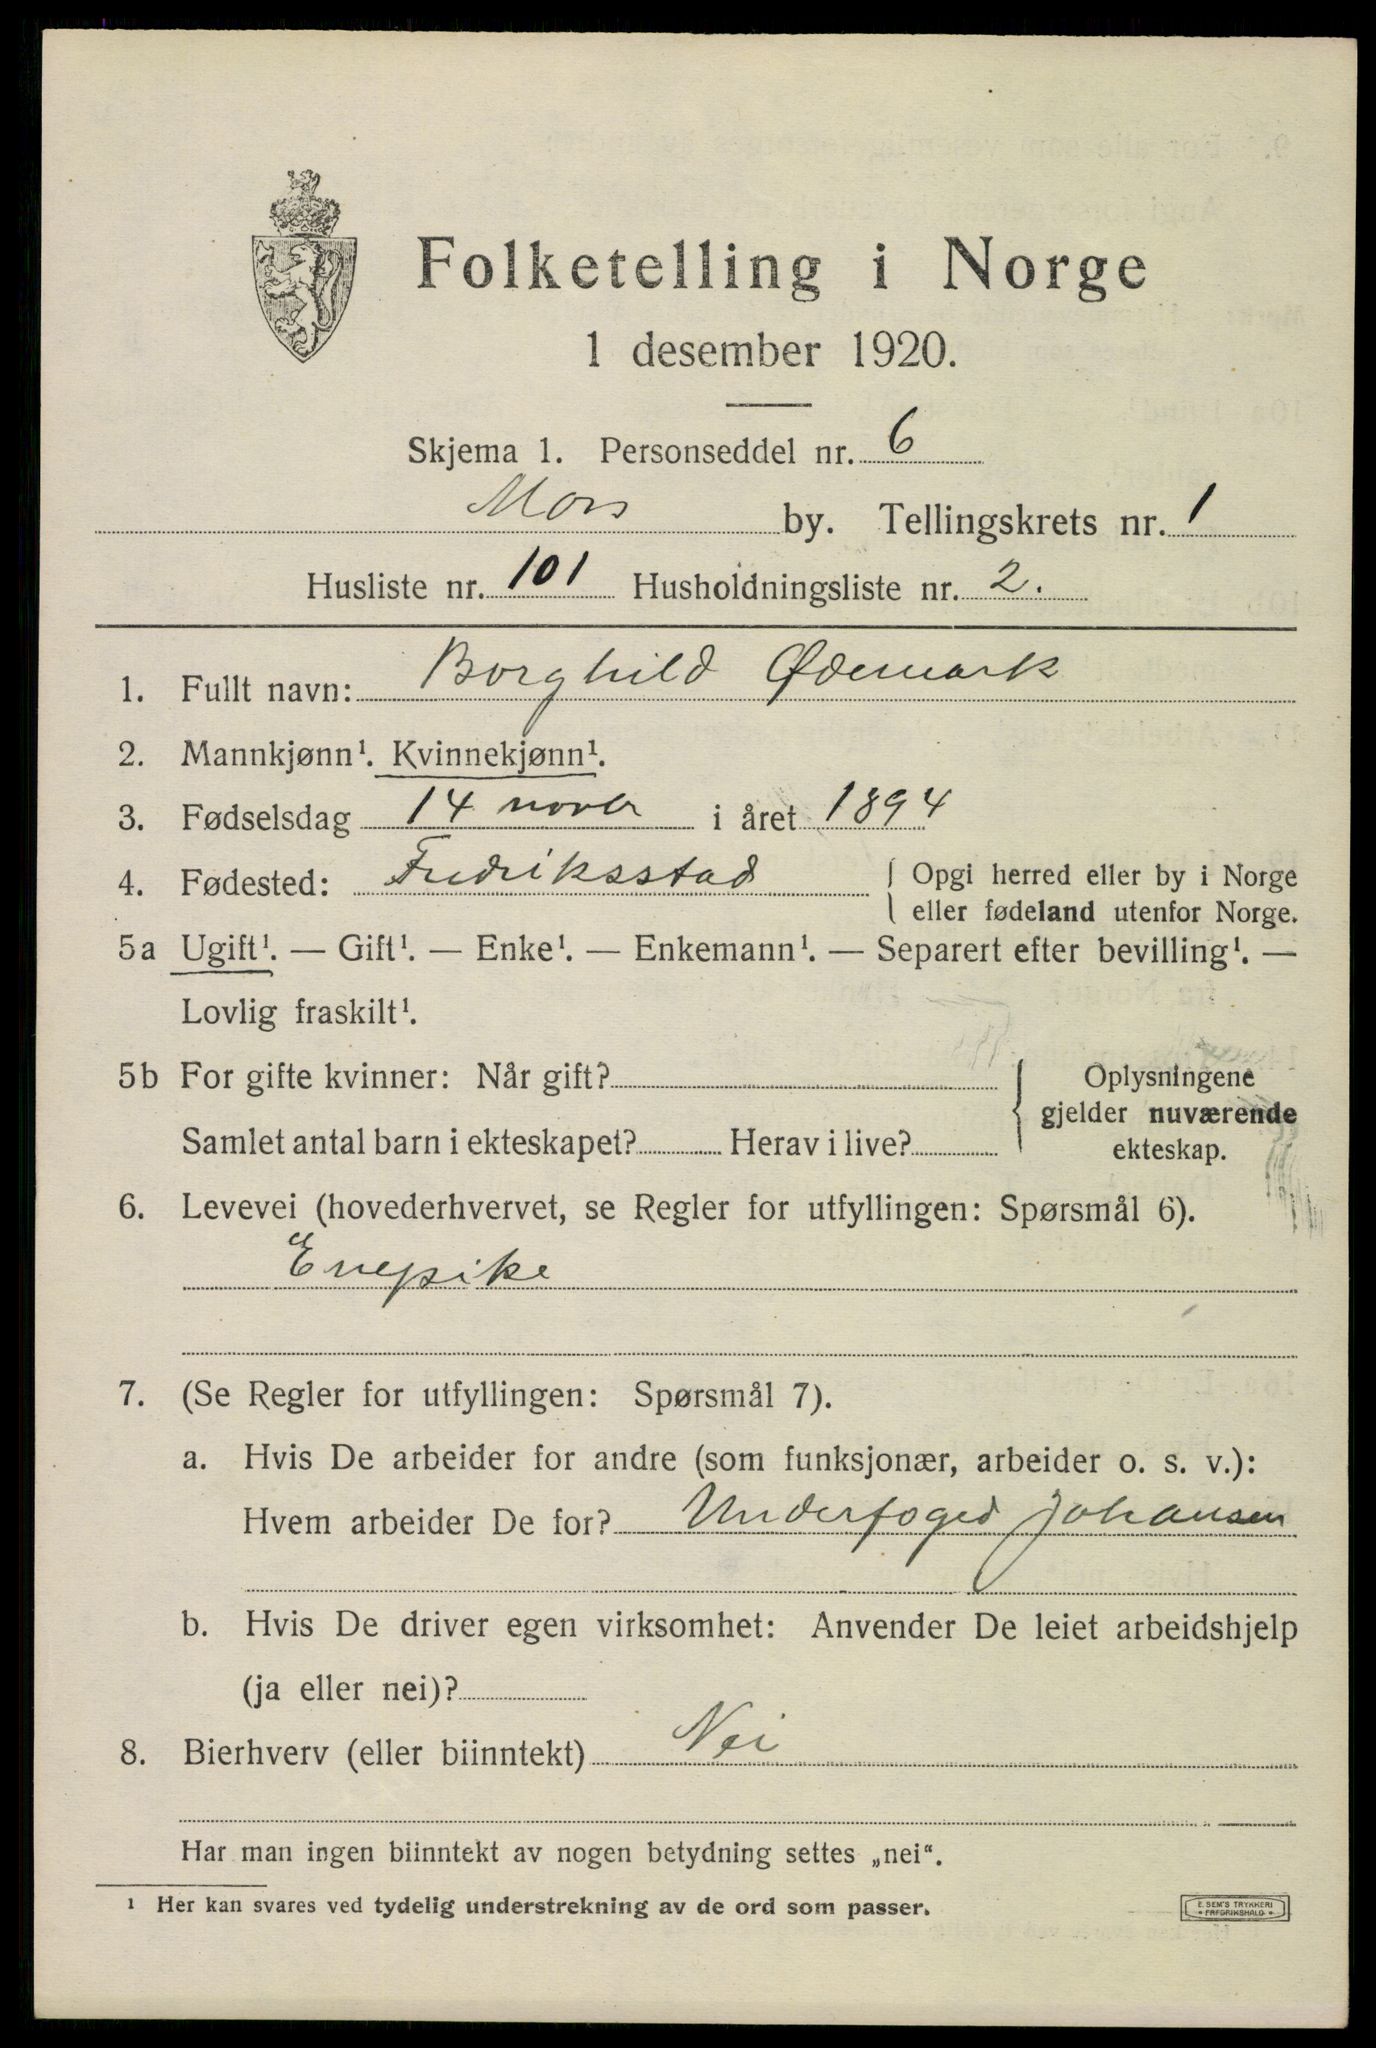 Folketelling i Norge
1 desember 1920.
Skjema 1. Personseddel nr. 6
Moss by. Tellingskrets nr. 1
Husliste nr. 101 Husholdningsliste nr. 2.
1. Fullt navn: Borghild Ødemark
2. Mannkjønn¹. Kvinnekjønn¹.
3. Fødselsdag 14 novbr i året 1894
4. Fødested: Fredriksstad { Opgi herred eller by i Norge
eller fødeland utenfor Norge.
5a Ugift¹. — Gift¹. — Enke¹. — Enkemann¹. — Separert efter bevilling¹. —
Lovlig fraskilt¹.
5b For gifte kvinner: Når gift?
Samlet antal barn i ekteskapet? Herav i live?
Oplysningene
gjelder nuværende
ekteskap.
6. Levevei (hovederhvervet, se Regler for utfyllingen: Spørsmål 6).
Enepike
7. (Se Regler for utfyllingen: Spørsmål 7).
a. Hvis De arbeider for andre (som funksjonær, arbeider o. s. v.):
Hvem arbeider De for? Underfoged Johansen
b. Hvis De driver egen virksomhet: Anvender De leiet arbeidshjelp
(ja eller nei)?
8. Bierhverv (eller biinntekt) Nei
Har man ingen biinntekt av nogen betydning settes „nei“.
¹ Her kan svares ved tydelig understrekning av de ord som passer.
E. SEM'S TRYKKERI
FREDRIKSHALD